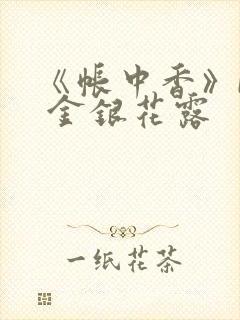 《帳中香》
金銀花露
一纸花茶